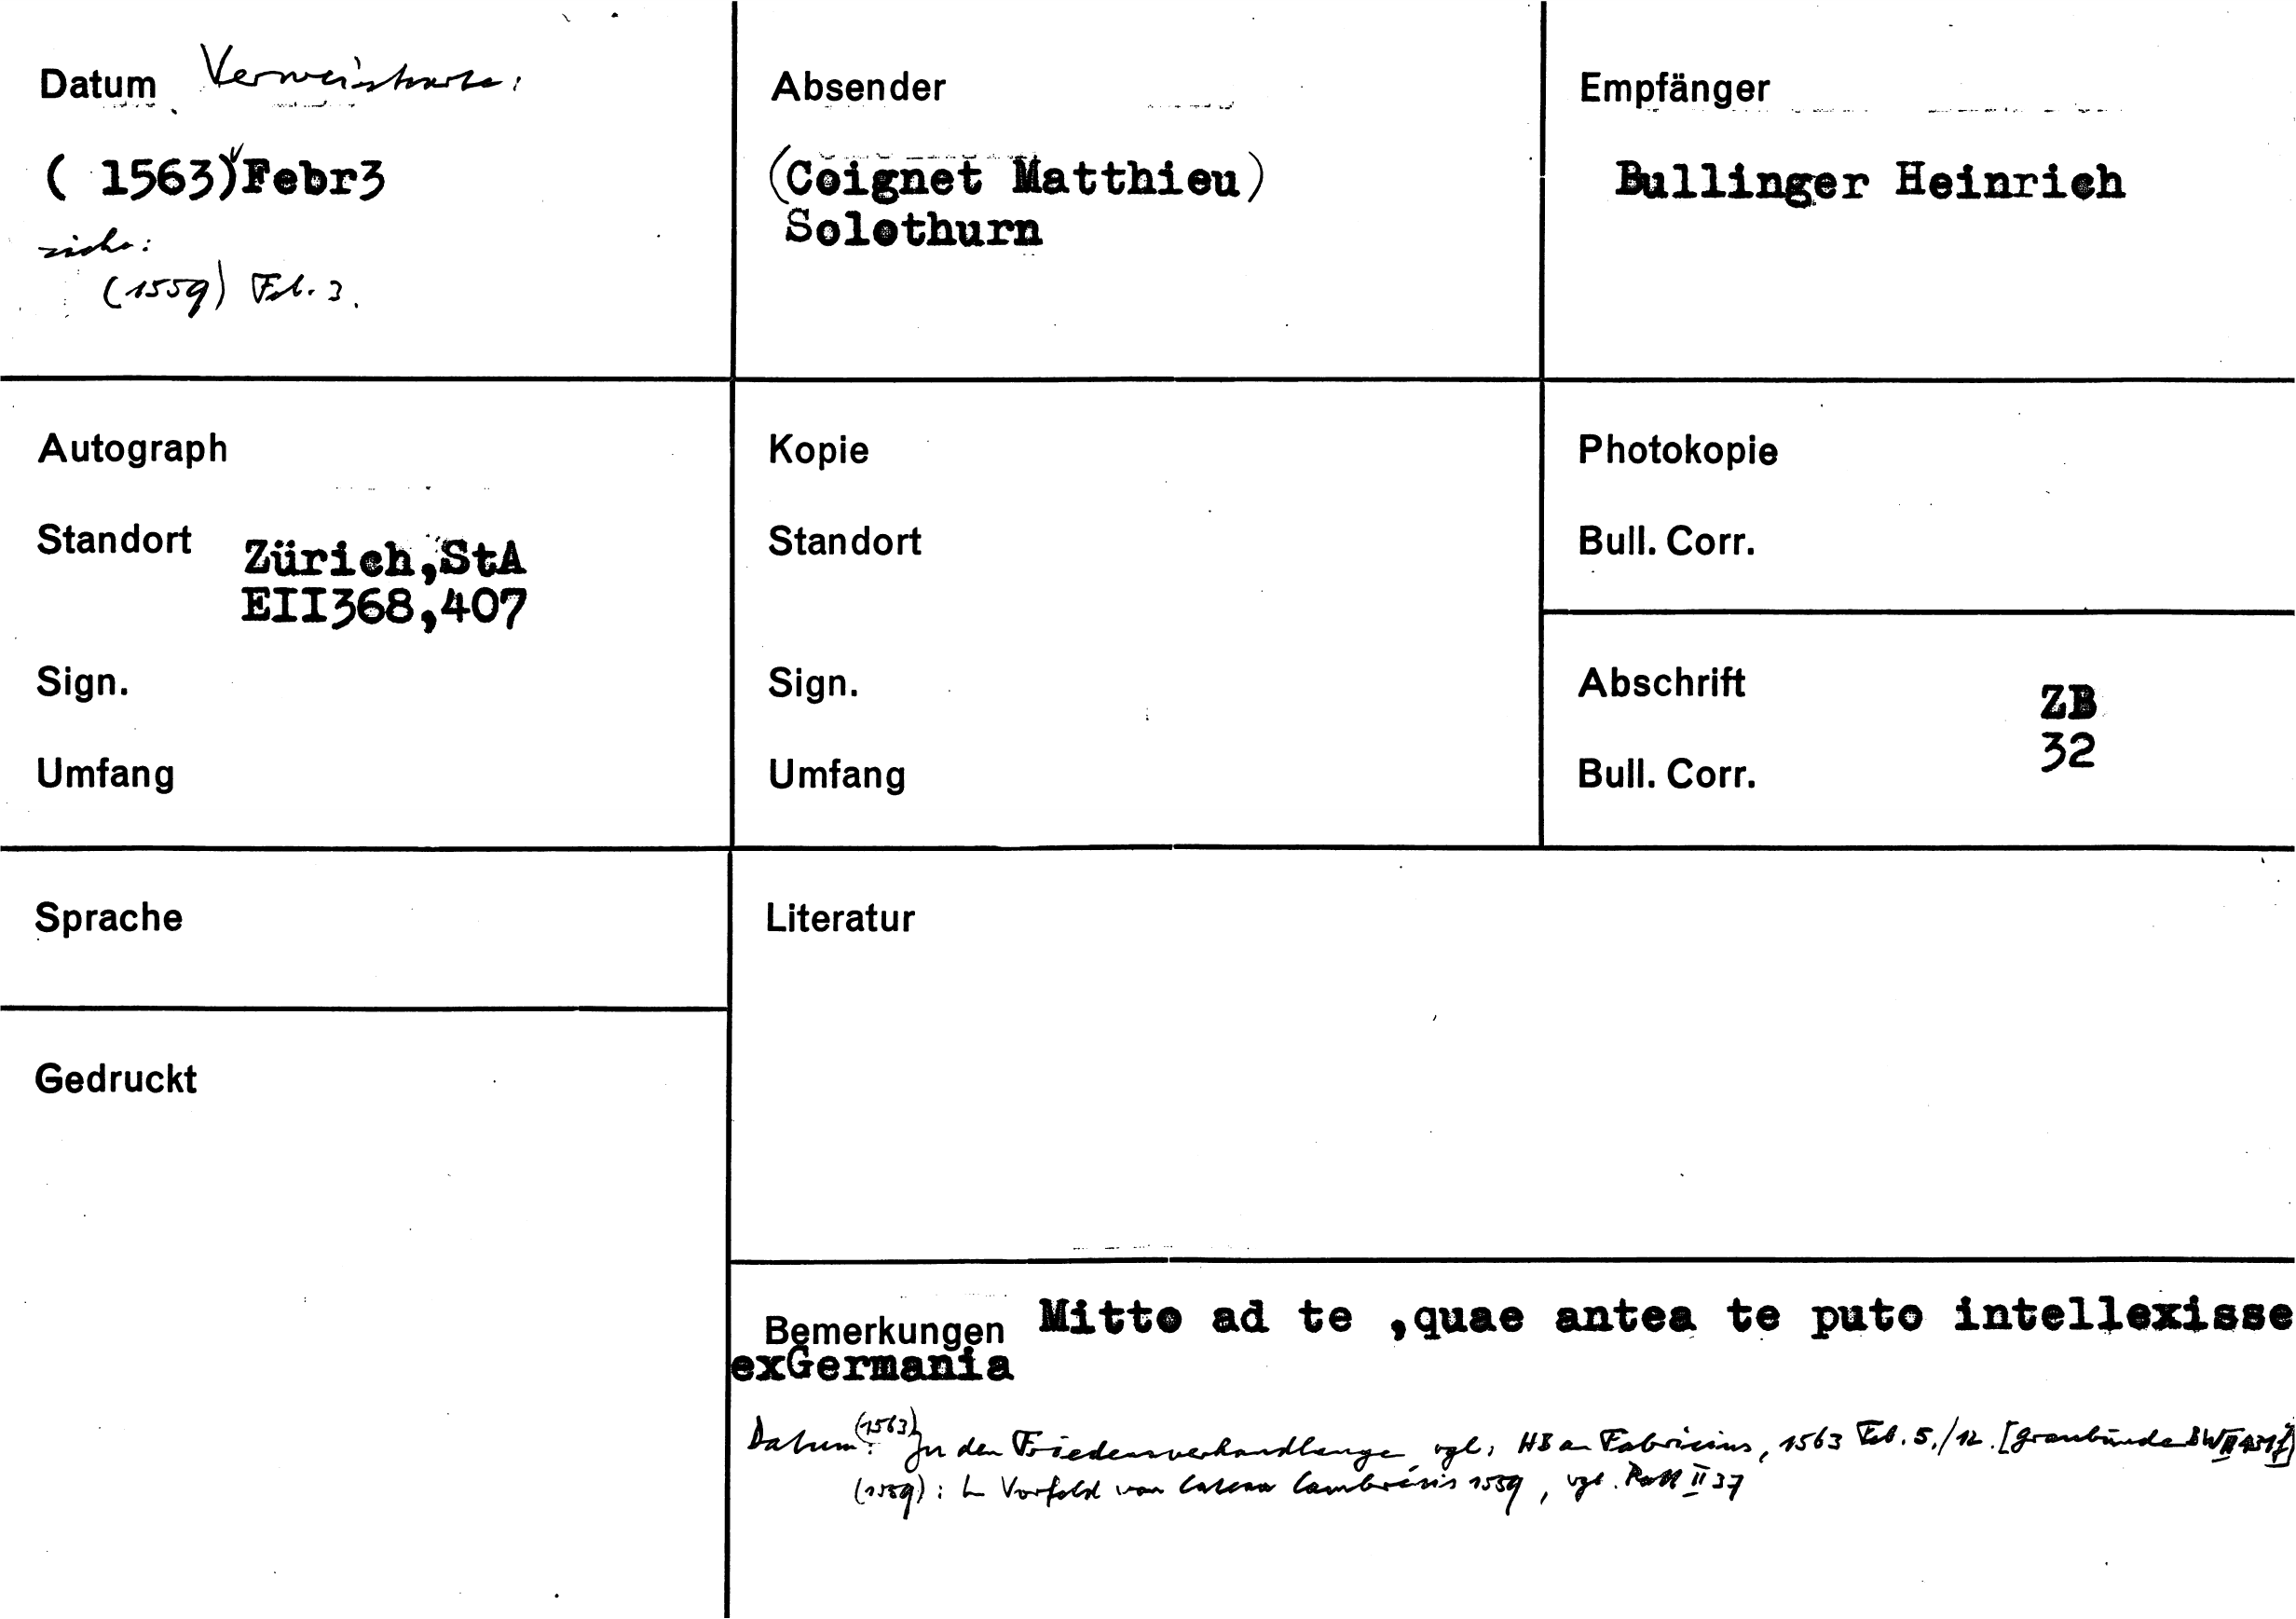 Datum Verweiskarte:
( 1563)Febr3
siehe:
(1559) Feb. 3.
Absender
(Coignet Matthieu)
Solothurn
Empfänger
Bullinger Heinrich
Autograph
Standort Zürich,StA
EII368,407
Sign.
Umfang
Kopie
Standort
Sign.
Umfang
Photokopie
Bull. Corr.
Abschrift ZB
32
Bull. Corr.
Sprache
Gedruckt
Literatur
Bemerkungen Mitto ad te ,quae antea te puto intellexisse
exGermania
Datum: (1563) Zu den Friedensverhandlungen vgl. HB an Fabricius, 1563 Feb. 5./12. [Graubünden BW II
(1559): Im Vorfeld von Cateau Cambrésis 1559, vgl. Rott II 37